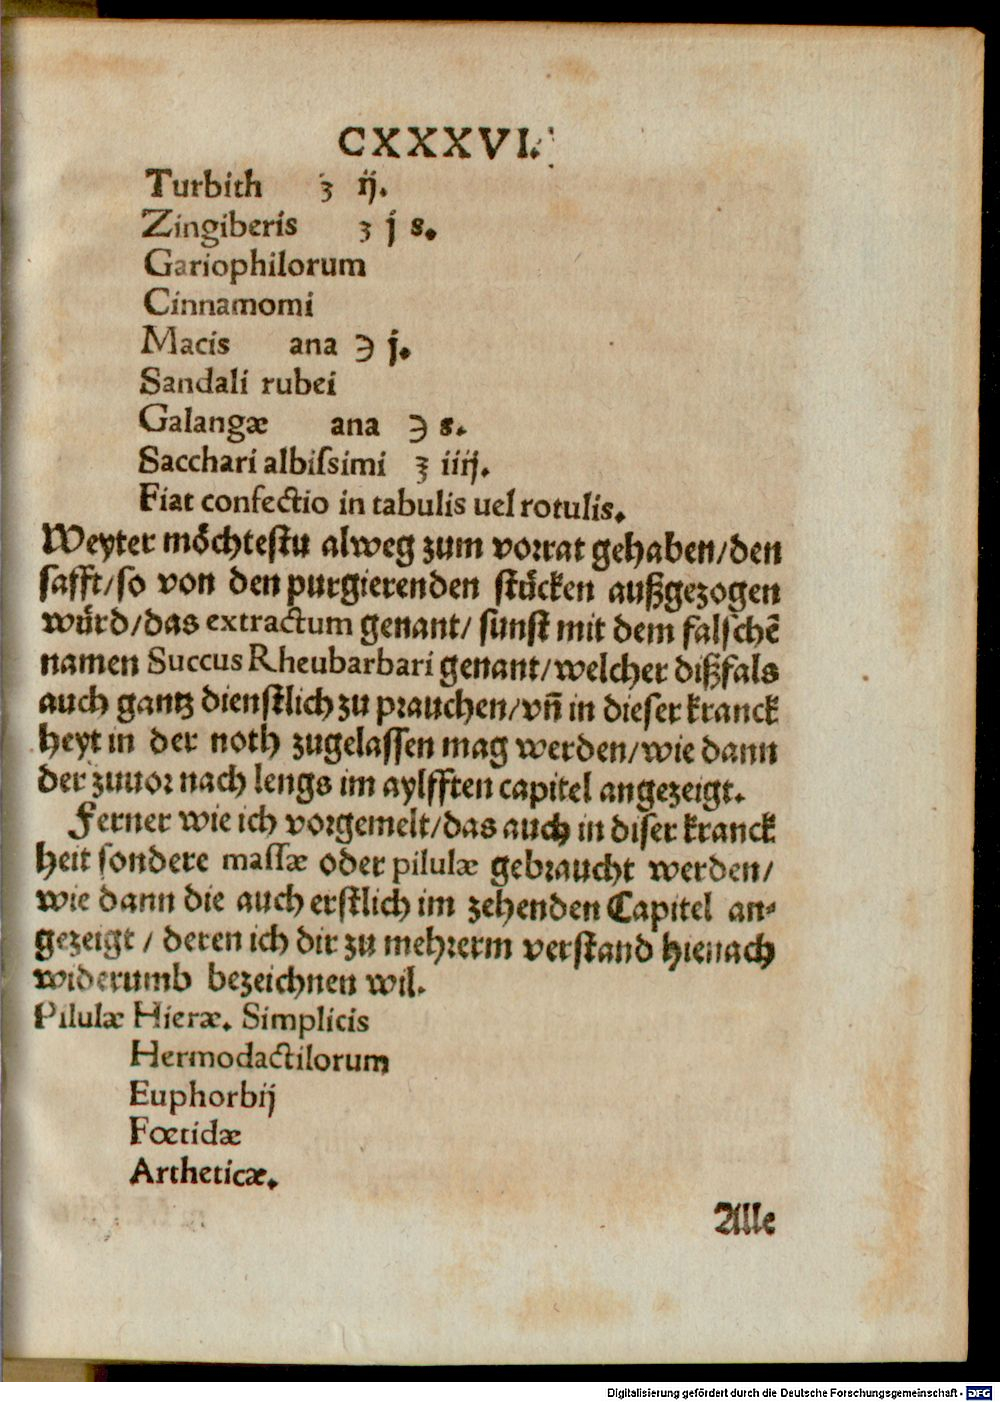 CXXXVI.
Turbith ʒ ij.
Zingiberis ʒ j s.
Gariophilorum
Cinnamomi
Macis ana ℈ j.
Sandali rubei
Galangæ ana ℈ s.
Sacchari albiſsimi ℥ iiij.
Fiat confectio in tabulis uel rotulis.
Weyter moͤchteſtu alweg zum vorrat gehaben/den
ſafft/ſo von den purgierenden ſtuͤcken außgezogen
wuͤrd/das extractum genant/ ſunſt mit dem falſchē
namen Succus Rheubarbari genant/welcher dißfals
auch gantz dienſtlich zu prauchen/vn̄ in dieſer kranck
heyt in der noth zugelaſſen mag werden/wie dann
der zuuor nach lengs im aylfften capitel angezeigt.
Ferner wie ich vorgemelt/das auch in diſer kranck
heit ſondere maſſæ oder pilulæ gebraucht werden/
wie dann die auch erſtlich im zehenden Capitel an⸗
gezeigt / deren ich dir zu mehrerm verſtand hienach
widerumb bezeichnen wil.
Pilulæ Hieræ. Simplicis
Hermodactilorum
Euphorbij
Fœtidæ
Artheticæ.
Alle
Digitalisierung gefördert durch die Deutsche Forschungsgemeinschaft - DFG